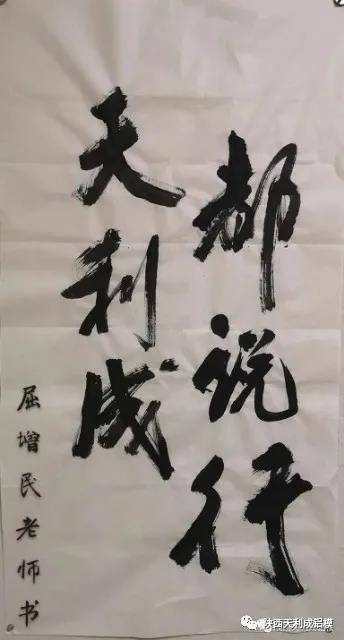 都说行
天利成
屈增民老师书
陕西天利成铝模